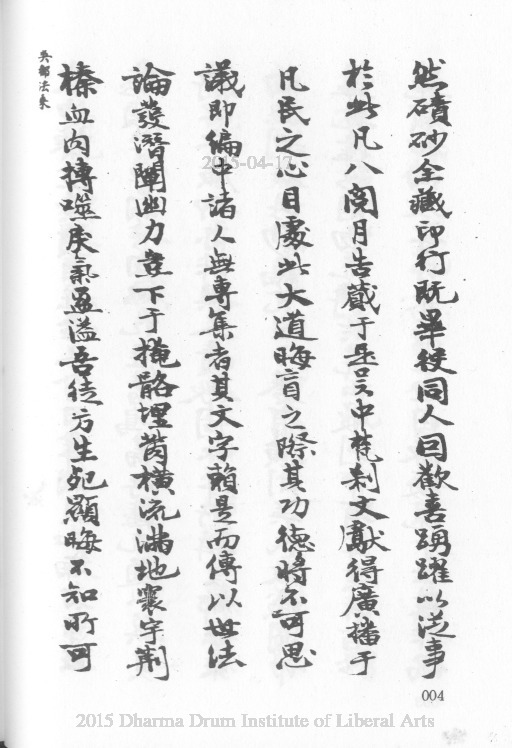 然磧砂全藏印行既畢役同人因歡喜踴躍以從事
於此凡八閱月告蕆于是吳中梵剎文獻得廣播于
凡民之心目處此大道晦盲之際其功德將不可思
議即編中諸人無專集者其文字賴是而傳以世法
論發潛闡幽力豈下于掩骼埋胔橫流滿地寰宇荊
榛血肉摶噬戾氣盈溢吾徒方生死顯晦不知所可
吳都法乘
004
2015-04-17
2015 Dharma Drum Institute of Liberal Arts